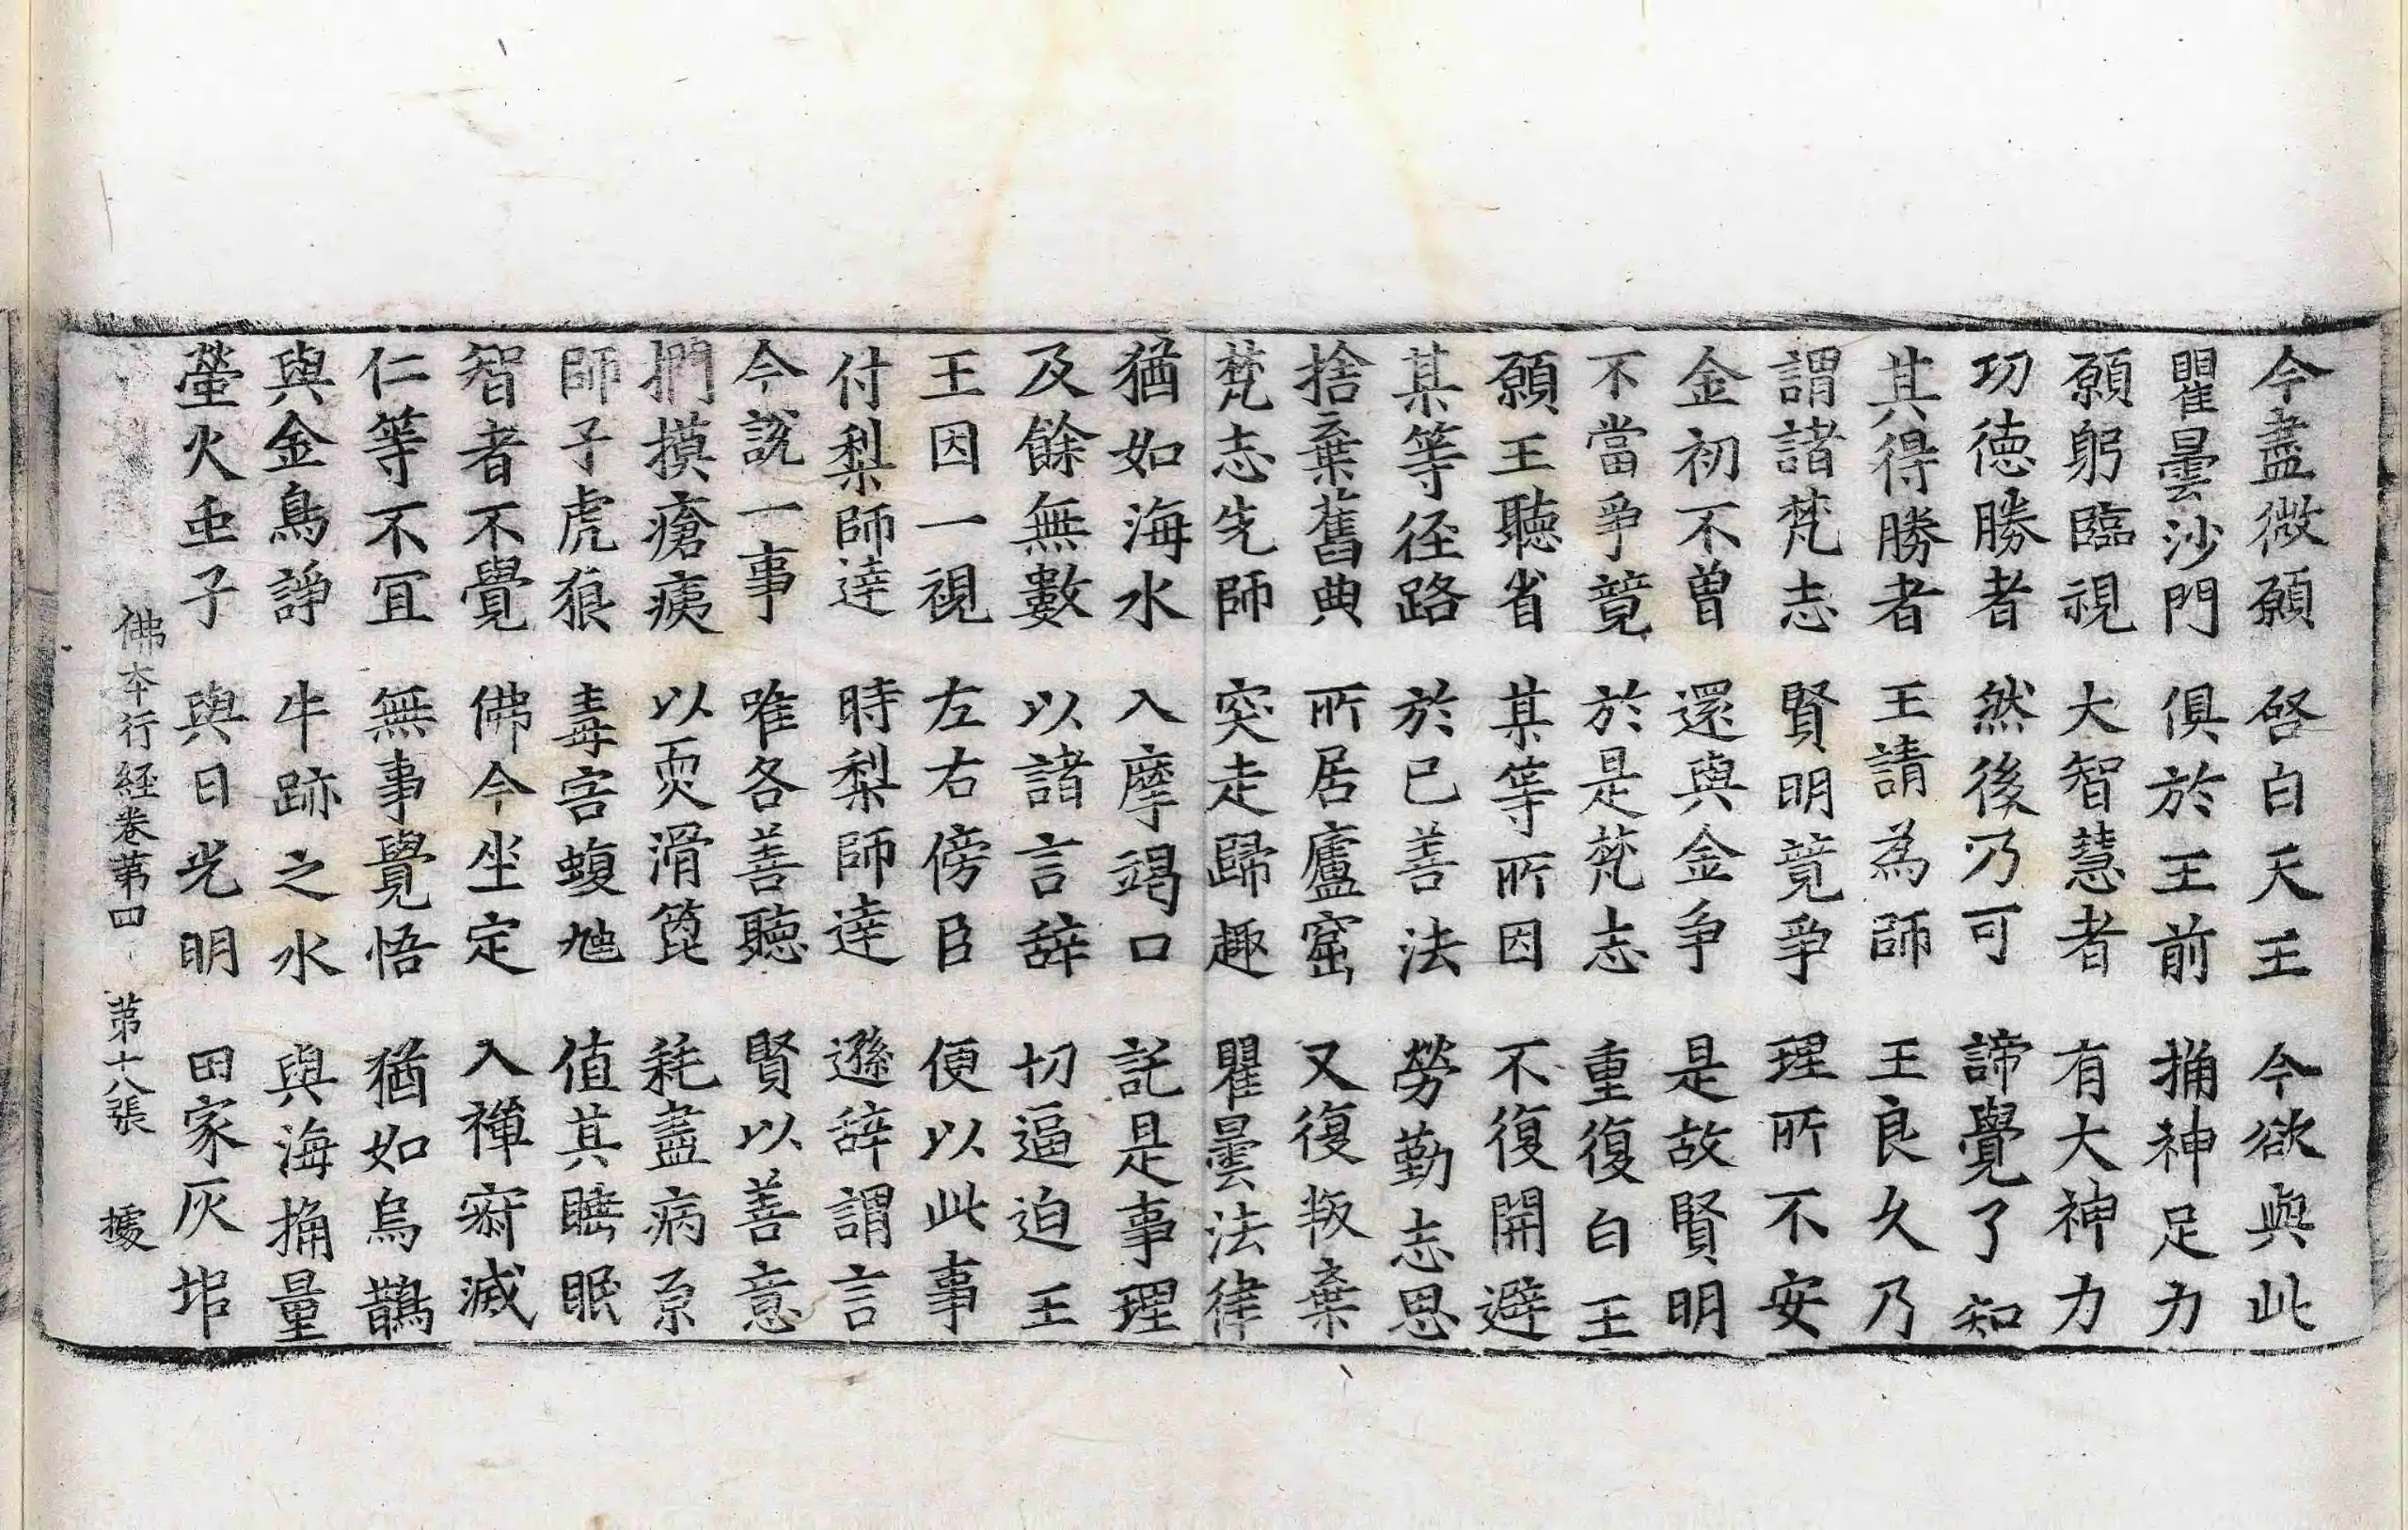 今盡微願 啓白天王 今欲與此
瞿曇沙門 俱於王前 捔神足力
願躬臨視 大智慧者 有大神力
功德勝者 然後乃可 諦覺了知
其得勝者 王請為師 王良久乃
謂諸梵志 賢明竟爭 理所不安
金初不曾 還與金爭 是故賢明
不當爭竟 於是梵志 重復白王
願王聽省 某等所因 不復開避
某等径路 於已善法 勞勤志思
捨棄舊典 所居廬窟 又復叛棄
梵志先師 突走歸趣 瞿曇法律
猶如海水 入摩竭口 託是事理
及餘無數 以諸言辞 切逼迫王
王因一視 左右傍臣 便以此事
付梨師達 時梨師達 遜辞謂言
今說一事 唯各善聽 賢以善意
捫摸瘡痍 以耎滑篦 耗盡病系
師子虎狼 毒害蝮虵 值其睡眠
智者不覺 佛今坐定 入禪寂滅
仁等不宜 無事覺悟 猶如烏鵲
與金鳥諍 牛跡之水 與海捔量
螢火虫子 與日光明 田家灰坩
佛本行経卷苐四 苐十八張 據